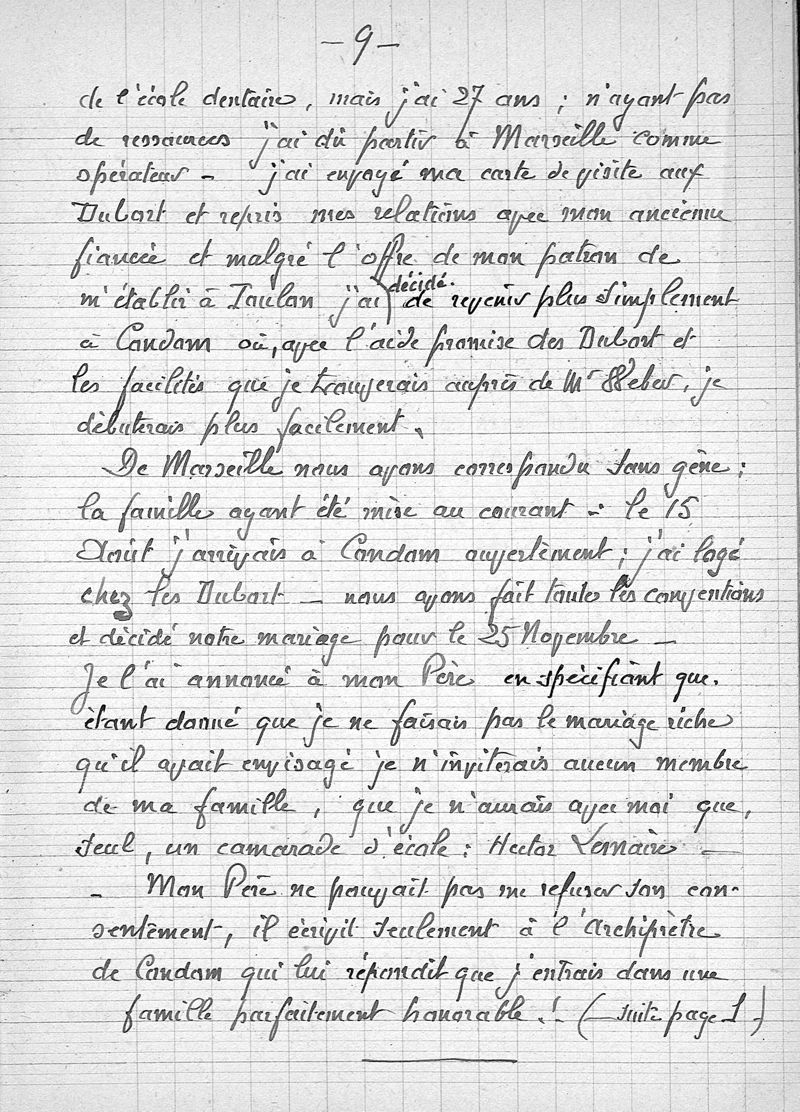 — 9 —
de l'école dentaire, mais j'ai 27 ans ; n'ayant pas
de ressources j'ai dû partir à Marseille comme
opérateur — j'ai envoyé ma carte de visite aux
Dubart et repris mes relations avec mon ancienne
fiancée et malgré l'offre de mon patron de
m'établir à Toulon j'ai décidé. de revenir plus simplement
à Condom où, avec l'aide promise des Dubart et
les facilités que je trouverais auprès de Mr Weber, je
débuterais plus facilement.
De Marseille nous avons correspondu sans gêne ;
la famille ayant été mise au courant — le 15
Août j'arrivais à Condom ouvertement ; j'ai logé
chez les Dubart — nous avons fait toutes les conventions
et décidé notre mariage pour le 25 Novembre —
Je l'ai annoncé à mon Père en spécifiant que.
étant donné que je ne faisais pas le mariage riche
qu'il avait envisagé je n'inviterais aucun membre
de ma famille, que je n'aurais avec moi que,
seul, un camarade d'école : Hector Lemaire —
— Mon Père ne pouvait pas me refuser son con-
sentement, il écrivit seulement à l'Archiprêtre
de Condom qui lui répondit que j'entrais dans une
famille parfaitement honorable.! (— suite page 1)